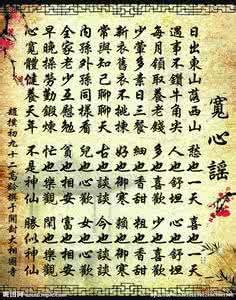 寬心謠
日出東山落西山 愁也一天 喜也一天
遇事不鑽牛角尖 人也舒坦 心也舒坦
每月領取養老錢 多也喜歡 少也喜歡
少葷多素日三餐 粗也香甜 細也香甜
新衣舊衣不挑揀 好也御寒 賴也御寒
常與知己聊聊天 古也談談 今也談談
內孫外孫同樣看 兒也心歡 女也心歡
全家老少互慰勉 貧也相安 富也相安
早晚操勞勤鍛煉 忙也樂觀 閑也樂觀
心寬體健養天年 不是神仙 勝似神仙
趙樸初九十二高齡撰于開封大相國寺
昵图网